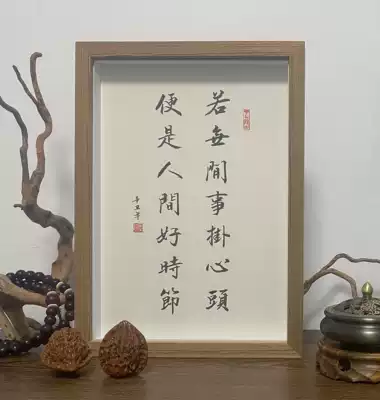 若無閒事掛心頭
便是人間好時節
辛丑